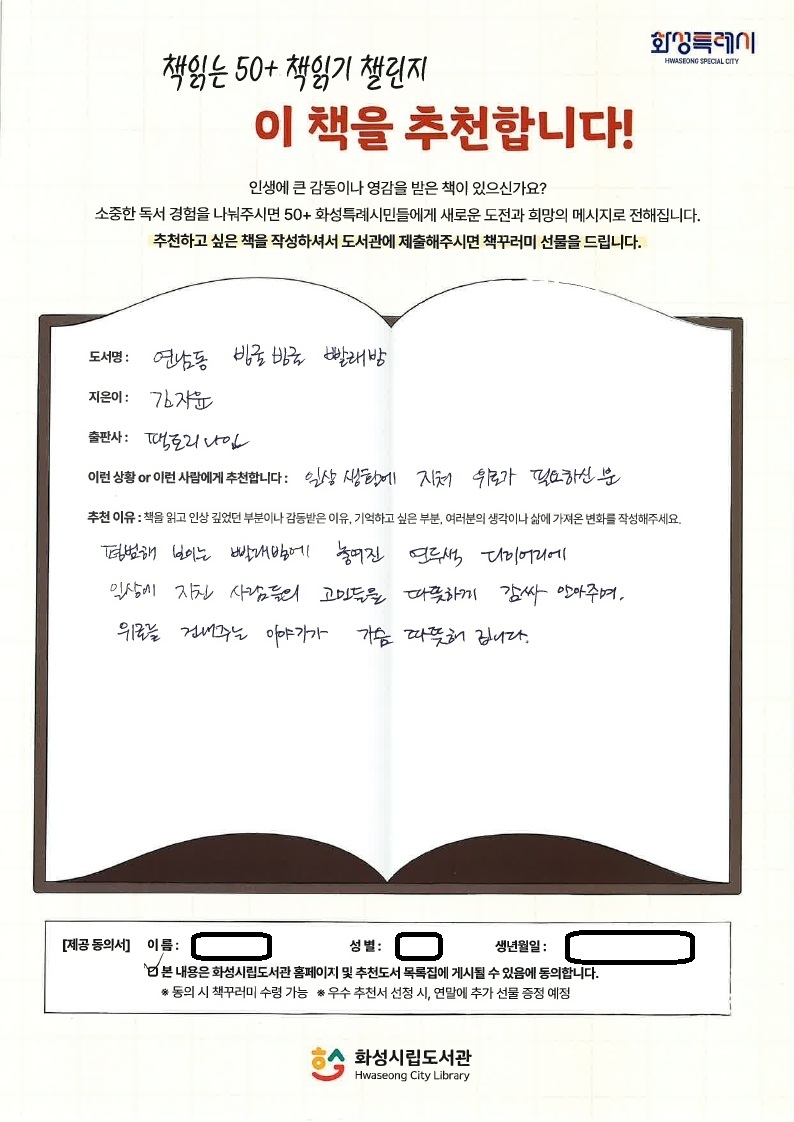 화성특례시
HWASEONG SPECIAL CITY
책읽는 50+ 책읽기 챌린지
이 책을 추천합니다!
인생에 큰 감동이나 영감을 받은 책이 있으신가요?
소중한 독서 경험을 나눠주시면 50+ 화성특례시민들에게 새로운 도전과 희망의 메시지로 전해집니다.
추천하고 싶은 책을 작성하셔서 도서관에 제출해주시면 책꾸러미 선물을 드립니다.
도서명 : 연남동 빙굴빙굴 빨래방
지은이 : 김지윤
출판사 : 팩토리나인
이런 상황 or 이런 사람에게 추천합니다 : 일상 생활에 지쳐 위로가 필요하신 분
추천 이유 : 책을 읽고 인상 깊었던 부분이나 감동받은 이유, 기억하고 싶은 부분, 여러분의 생각이나 삶에 가져온 변화를 작성해주세요.
평범해 보이는 빨래방에 놓여진 연두색 다이어리에
일상에 지친 사람들의 고민들을 따뜻하게 감싸 안아주며,
위로를 건네주는 이야기가 가슴 따뜻해 집니다.
[제공 동의서] 이 름 : 성 별 : 생년월일 :
본 내용은 화성시립도서관 홈페이지 및 추천도서 목록집에 게시될 수 있음에 동의합니다.
※ 동의 시 책꾸러미 수령 가능 ※ 우수 추천서 선정 시, 연말에 추가 선물 증정 예정
화성시립도서관
Hwaseong City Library